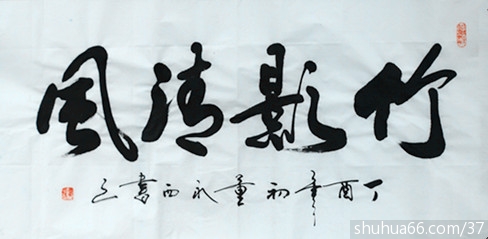 竹影清风
丁酉年初董永西书之
shuhua66.com/37